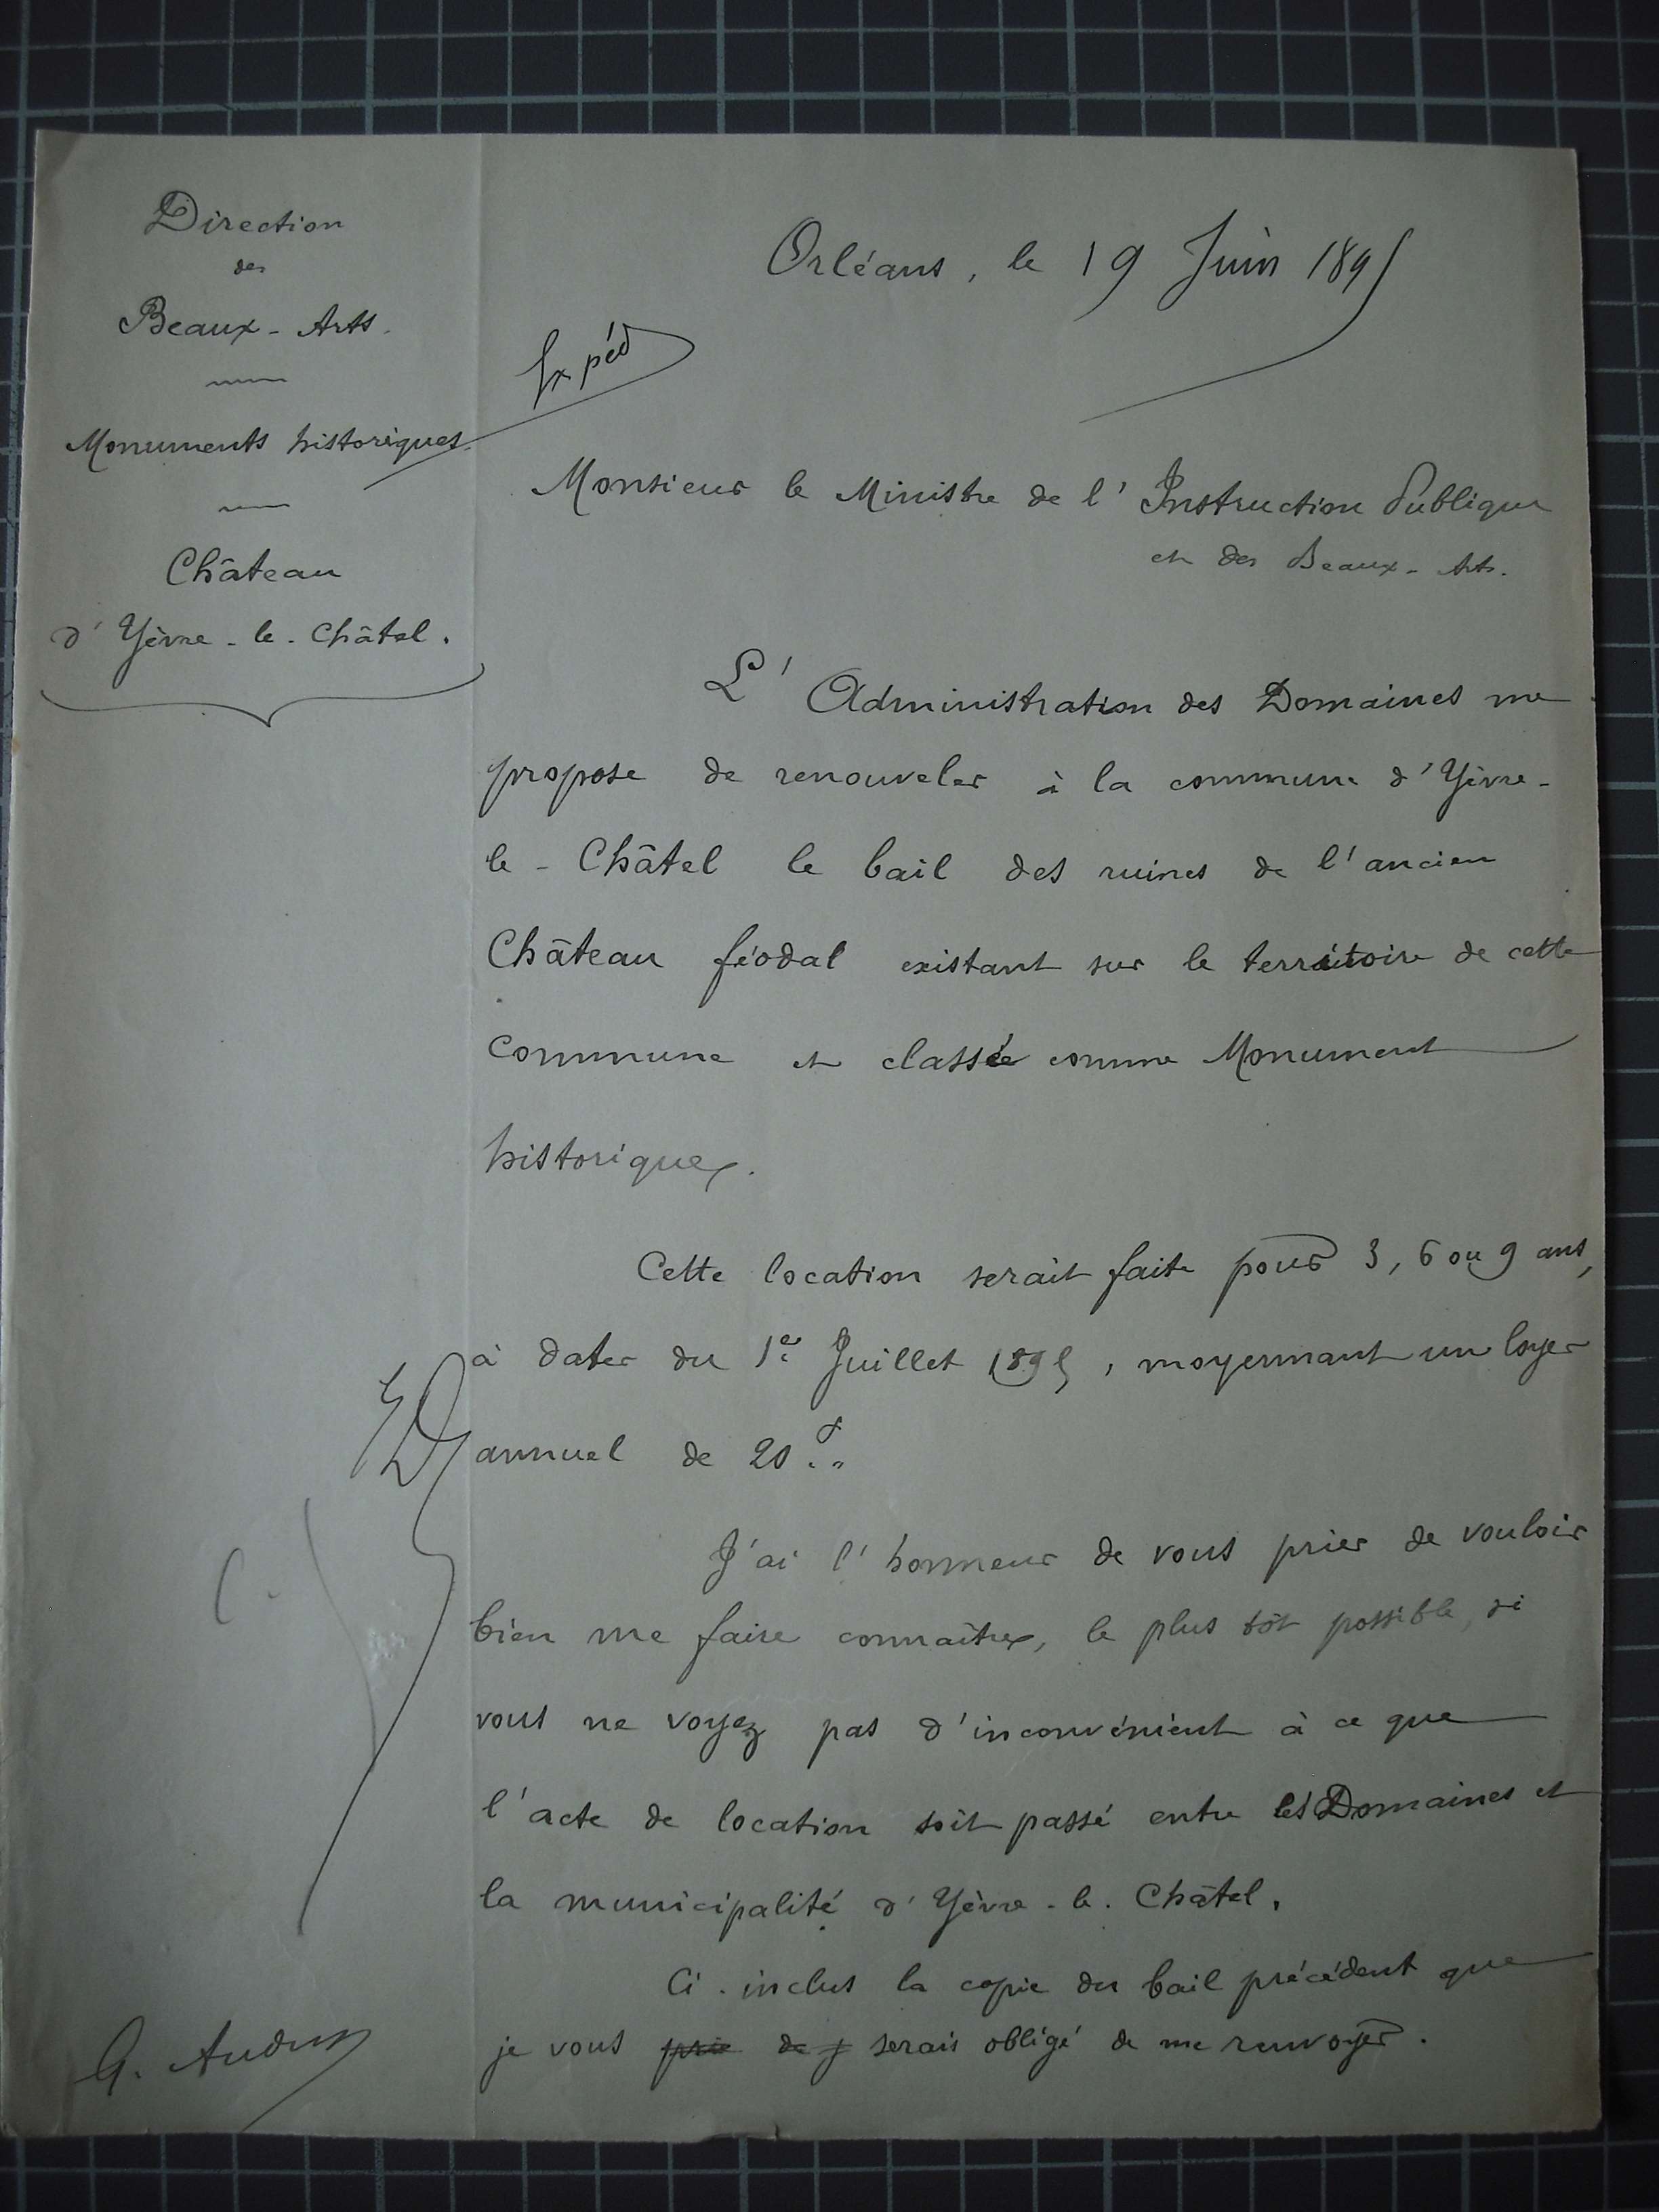 Direction
des
Beaux-Arts.
Monuments historiques
Château
d'Yèvre-le-Châtel.
Orléans, le 19 Juin 1895
Expéd
Monsieur le Ministre de l'Instruction Publique
et des Beaux-Arts.
L'Administration des Domaines me
propose de renouveler à la commune d'Yèvre-
le-Châtel le bail des ruines de l'ancien
Château féodal existant sur le territoire de cette
commune et classée comme Monument
historique.
Cette location serait faite pour 3, 6 ou 9 ans,
à dater du 1er Juillet 1895, moyennant un loyer
annuel de 20 f. "
J'ai l'honneur de vous prier de vouloir
bien me faire connaître, le plus tôt possible, si
vous ne voyez pas d'inconvénient à ce que
l'acte de location soit passé entre les Domaines et
la municipalité d'Yèvre-le-Châtel.
Ci-inclus la copie du bail précédent que
je vous prie de serais obligé de me renvoyer.